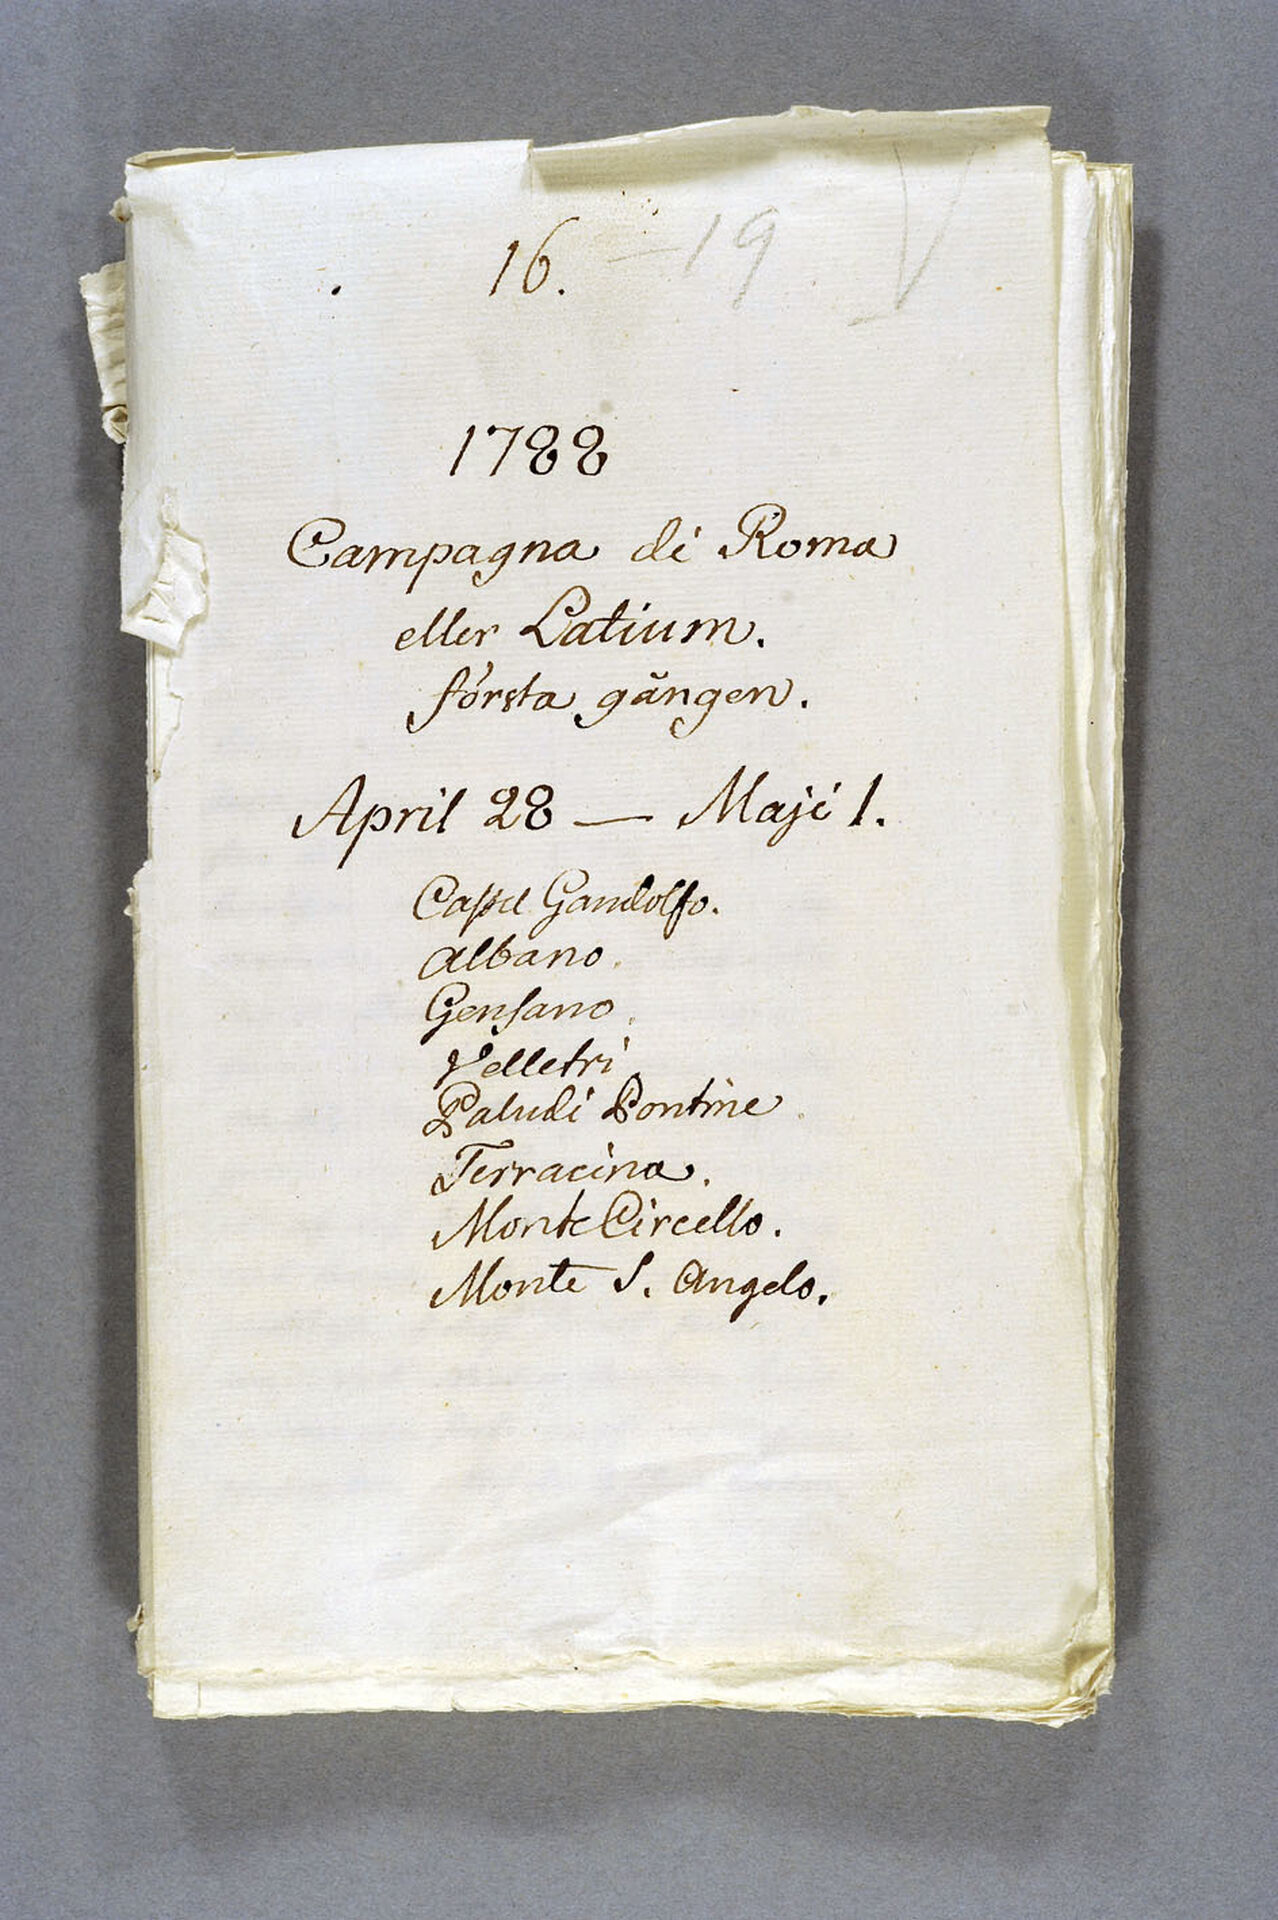 16. —19 V
1788
Campagna di Roma
eller Latium.
första gången.
April 28 — Maji 1.
Castel Gandolfo.
Albano.
Gensano.
Velletri
Paludi Pontine
Terracina.
Monte Circello.
Monte S. Angelo.